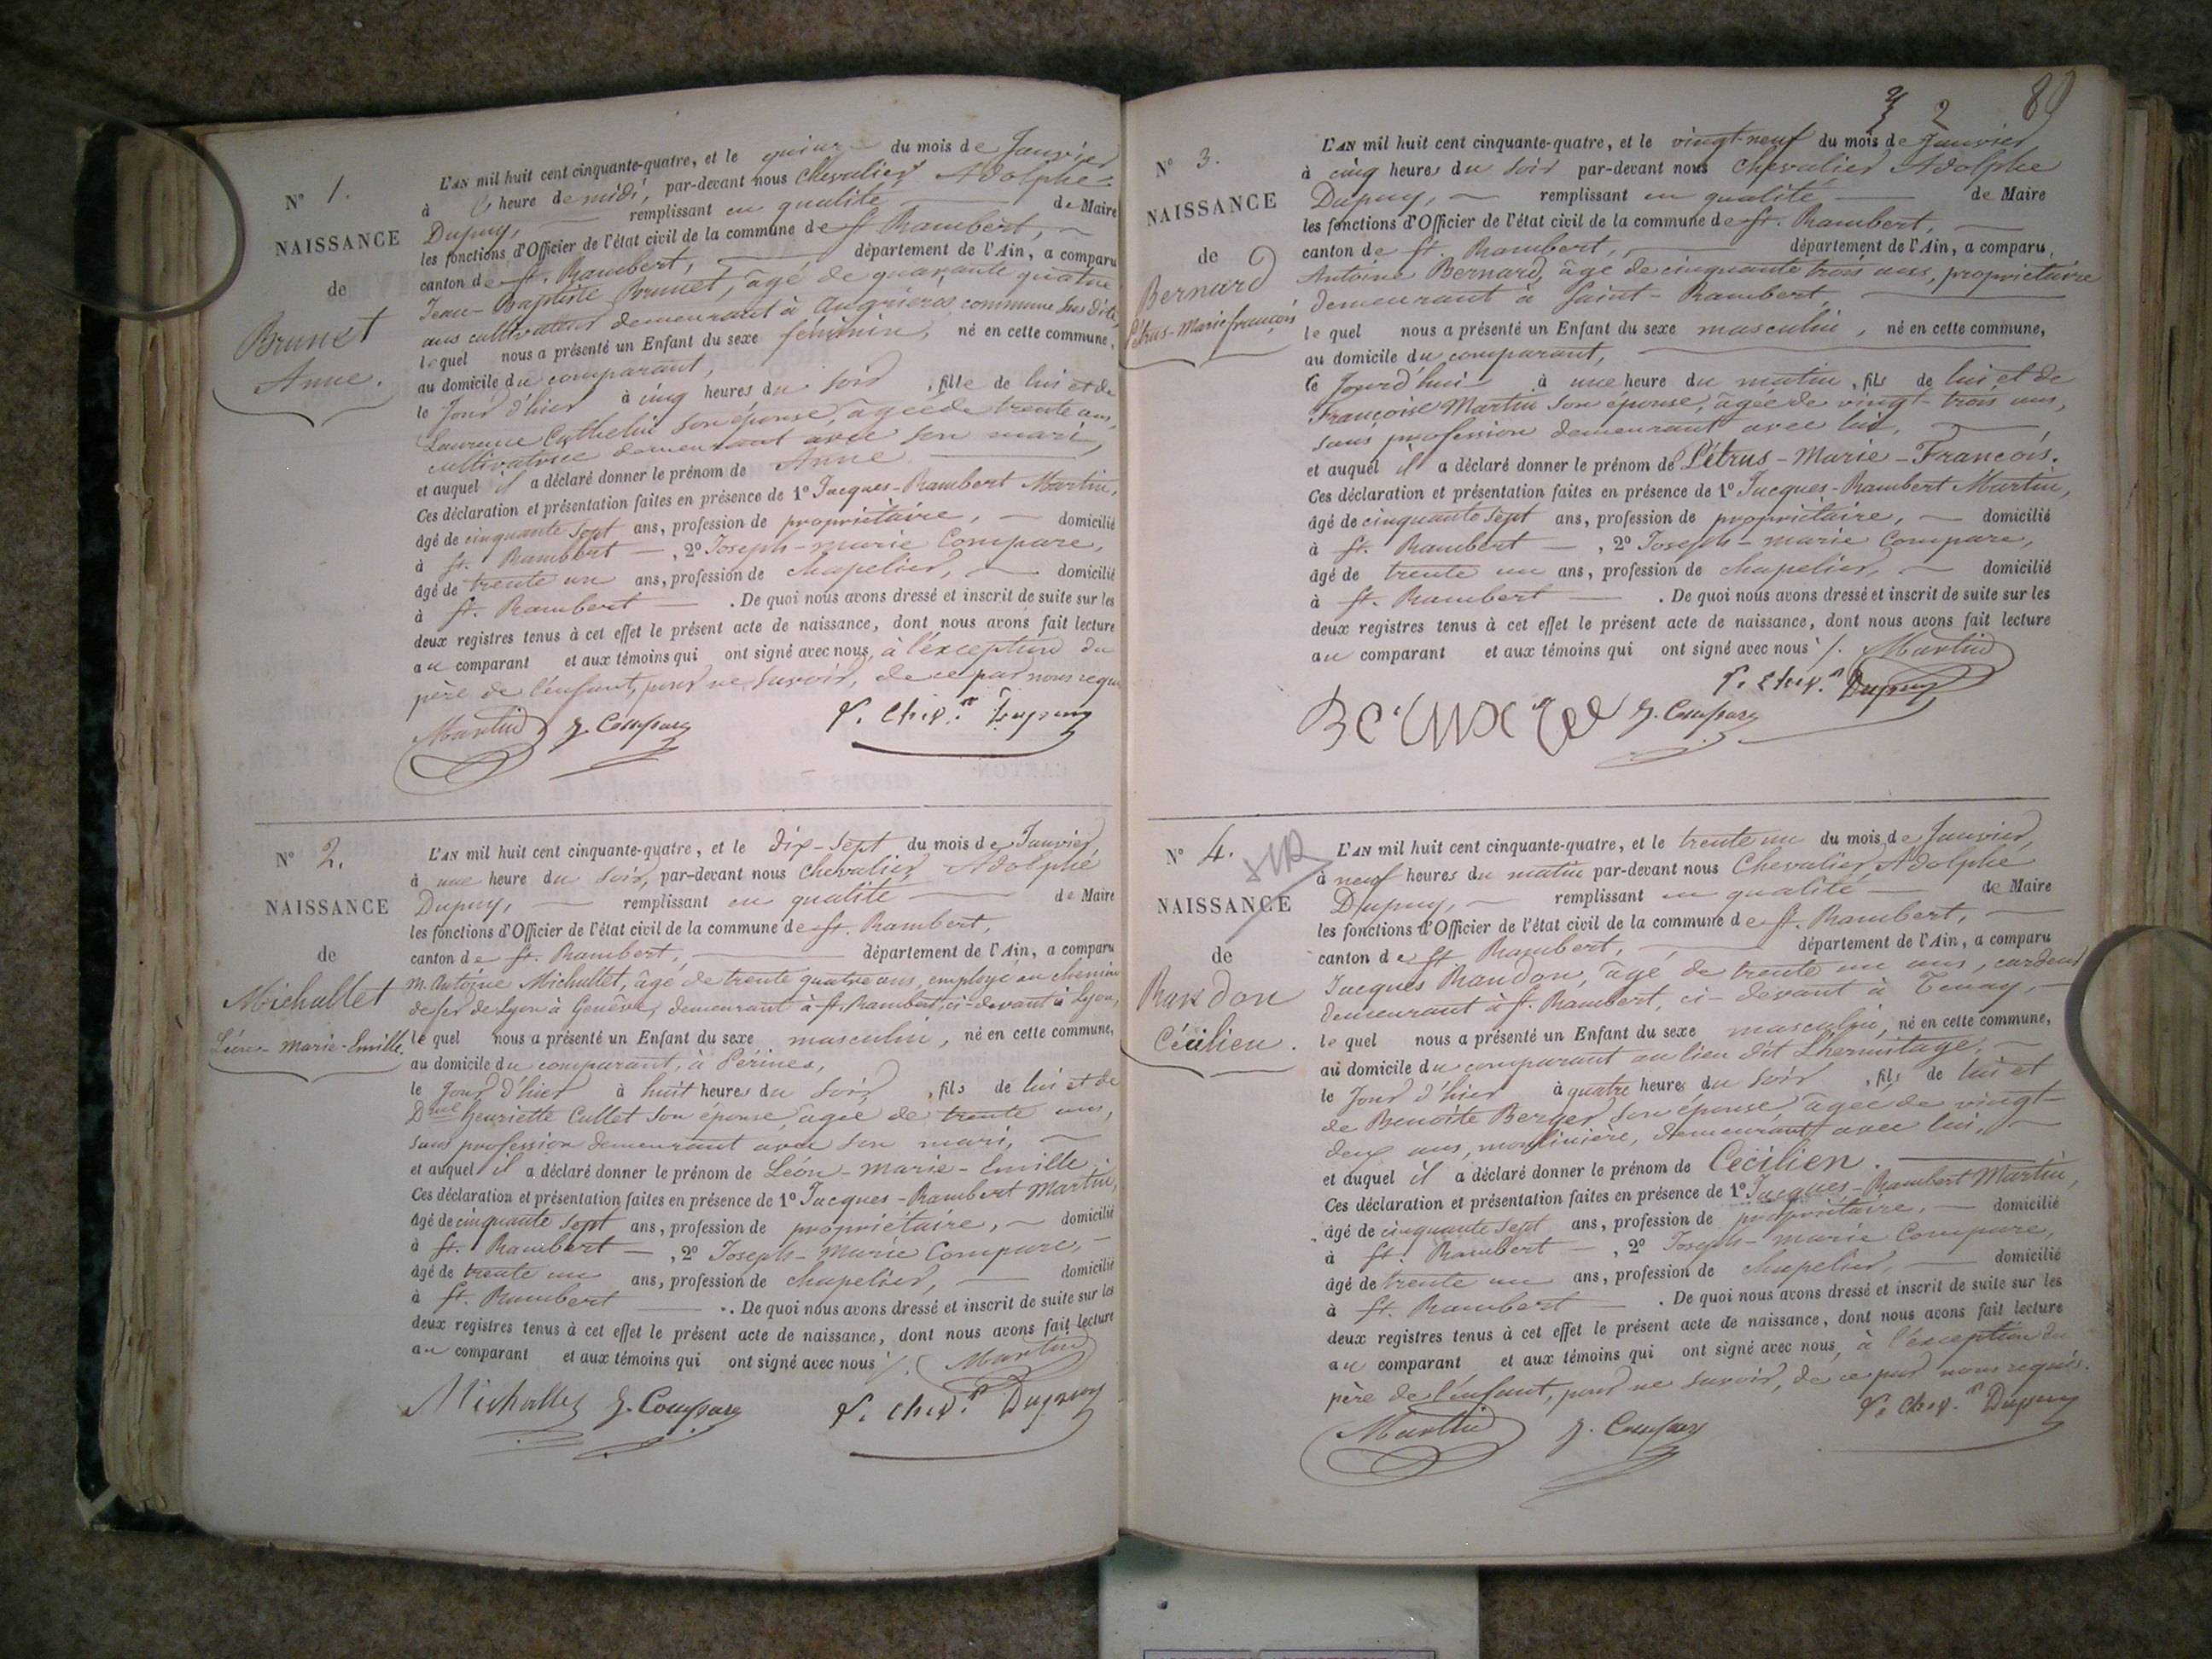 N° 1.
NAISSANCE
de
Brunet
Anne.
L'AN mil huit cent cinquante-quatre, et le quinze du mois de Janvier
à heure de midi, par-devant nous Chevalier Adolphe
Dupuy, remplissant en qualité de Maire
les fonctions d'Officier de l'état civil de la commune de St. Rambert,
canton de St. Rambert, département de l'Ain, a comparu
Jean-Baptiste Brunet, âgé de quarante quatre
ans cultivateur demeurant à Angrières, commune sus dite,
lequel nous a présenté un Enfant du sexe féminin, né en cette commune,
au domicile du comparant,
le Jour d'hier à cinq heures du soir, fille de lui et de
Laurence Cuthelin son épouse, âgée de trente ans,
cultivatrice demeurant avec son mari,
et auquel il a déclaré donner le prénom de Anne
Ces déclaration et présentation faites en présence de 1° Jacques-Rambert Martin,
âgé de cinquante sept ans, profession de propriétaire, domicilié
à St. Rambert, 2° Joseph-marie Compare,
âgé de trente un ans, profession de chapelier, domicilié
à St. Rambert. De quoi nous avons dressé et inscrit de suite sur les
deux registres tenus à cet effet le présent acte de naissance, dont nous avons fait lecture
au comparant et aux témoins qui ont signé avec nous, à l'exception du
père de l'enfant, pour ne savoir, de ce par nous requis
Martin J. Compare P. Chev.er Dupuy
N° 2.
NAISSANCE
de
Michallet
Léon-Marie-Emille.
L'AN mil huit cent cinquante-quatre, et le dix-sept du mois de Janvier,
à une heure du soir, par-devant nous Chevalier Adolphe
Dupuy, remplissant en qualité de Maire
les fonctions d'Officier de l'état civil de la commune de St. Rambert,
canton de St. Rambert, département de l'Ain, a comparu
M. Antoine Michallet, âgé de trente quatre ans, employé au chemin
de fer de Lyon à Genève, demeurant à St. Rambert, ci-devant à Lyon,
lequel nous a présenté un Enfant du sexe masculin, né en cette commune,
au domicile du comparant, à Sérines,
le Jour d'hier à huit heures du soir, fils de lui et de
Dme henriette Cullet son épouse, âgée de trente ans,
sans profession demeurant avec son mari,
et auquel il a déclaré donner le prénom de Léon-marie-Emille.
Ces déclaration et présentation faites en présence de 1° Jacques-Rambert Martin,
âgé de cinquante sept ans, profession de propriétaire, domicilié
à St. Rambert, 2° Joseph-Marie Compare,
âgé de trente un ans, profession de chapelier, domicilié
à St. Rambert. De quoi nous avons dressé et inscrit de suite sur les
deux registres tenus à cet effet le présent acte de naissance, dont nous avons fait lecture
au comparant et aux témoins qui ont signé avec nous /. Martin
Michallet J. Compare P. Chev.er Dupuy
2 89
N° 3.
NAISSANCE
de
Bernard
Pétrus-Marie françois
L'AN mil huit cent cinquante-quatre, et le vingt-neuf du mois de Janvier
à cinq heures du soir par-devant nous Chevalier Adolphe
Dupuy, remplissant en qualité de Maire
les fonctions d'Officier de l'état civil de la commune de St. Rambert,
canton de St. Rambert, département de l'Ain, a comparu,
Antoine Bernard, âgé de cinquante trois ans, propriétaire
demeurant à Saint-Rambert,
lequel nous a présenté un Enfant du sexe masculin, né en cette commune,
au domicile du comparant,
ce Jourd'hui à une heure du matin, fils de lui et de
Françoise Martin son épouse, âgée de vingt-trois ans,
sans profession demeurant avec lui,
et auquel il a déclaré donner le prénom de Pétrus-Marie-François.
Ces déclaration et présentation faites en présence de 1° Jacques-Rambert Martin,
âgé de cinquante sept ans, profession de propriétaire, domicilié
à St. Rambert, 2° Joseph-marie Compare,
âgé de trente un ans, profession de chapelier, domicilié
à St. Rambert. De quoi nous avons dressé et inscrit de suite sur les
deux registres tenus à cet effet le présent acte de naissance, dont nous avons fait lecture
au comparant et aux témoins qui ont signé avec nous /. Martin
P. Chev.er Dupuy
J. Compare
N° 4.
NAISSANCE
de
Randon
Cécilien.
L'AN mil huit cent cinquante-quatre, et le trente un du mois de Janvier,
à neuf heures du matin par-devant nous Chevalier Adolphe
Dupuy, remplissant en qualité de Maire
les fonctions d'Officier de l'état civil de la commune de St. Rambert,
canton de St Rambert, département de l'Ain, a comparu
Jacques Randon, âgé de trente un ans, cardeur
demeurant à St. Rambert, ci-devant à Tenay,
lequel nous a présenté un Enfant du sexe masculin, né en cette commune,
au domicile du comparant au lieu dit Lhermitage,
le Jour d'hier à quatre heures du soir, fils de lui et
de Benoite Berger son épouse âgée de vingt-
deux ans, moulinière, demeurant avec lui,
et auquel il a déclaré donner le prénom de Cécilien.
Ces déclaration et présentation faites en présence de 1° Jacques-Rambert Martin,
âgé de cinquante sept ans, profession de propriétaire, domicilié
à St. Rambert, 2° Joseph-marie Compare,
âgé de trente un ans, profession de chapelier, domicilié
à St. Rambert. De quoi nous avons dressé et inscrit de suite sur les
deux registres tenus à cet effet le présent acte de naissance, dont nous avons fait lecture
au comparant et aux témoins qui ont signé avec nous, à l'exception du
père de l'enfant, pour ne savoir, de ce par nous requis.
Martin J. Compare P. Chev.er Dupuy